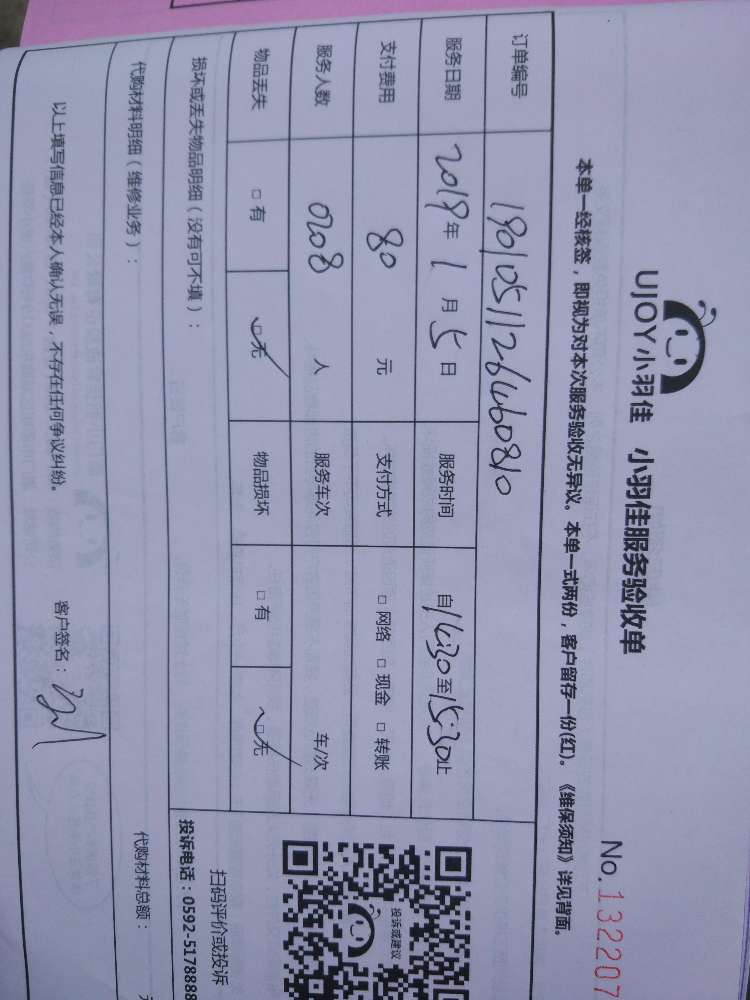 UJOY小羽佳 小羽佳服务验收单
No.132207
本单一经核签，即视为对本次服务验收无异议。本单一式两份，客户留存一份(红)。《维保须知》详见背面。
订单编号 190105112646081０
服务日期 2019年1月5日 服务时间 自14:30至15:30止
支付费用 80元 支付方式 □网络 □现金 □转账
服务人数 0208人 服务车次 车/次
物品丢失 □有 ☑无 物品损坏 □有 ☑无
投诉或建议
扫码评价或投诉
投诉电话：0592-5178888
损坏或丢失物品明细（没有可不填）：
代购材料明细（维修业务）： 代购材料总额：
以上填写信息已经本人确认无误，不存在任何争议纠纷。 客户签名：